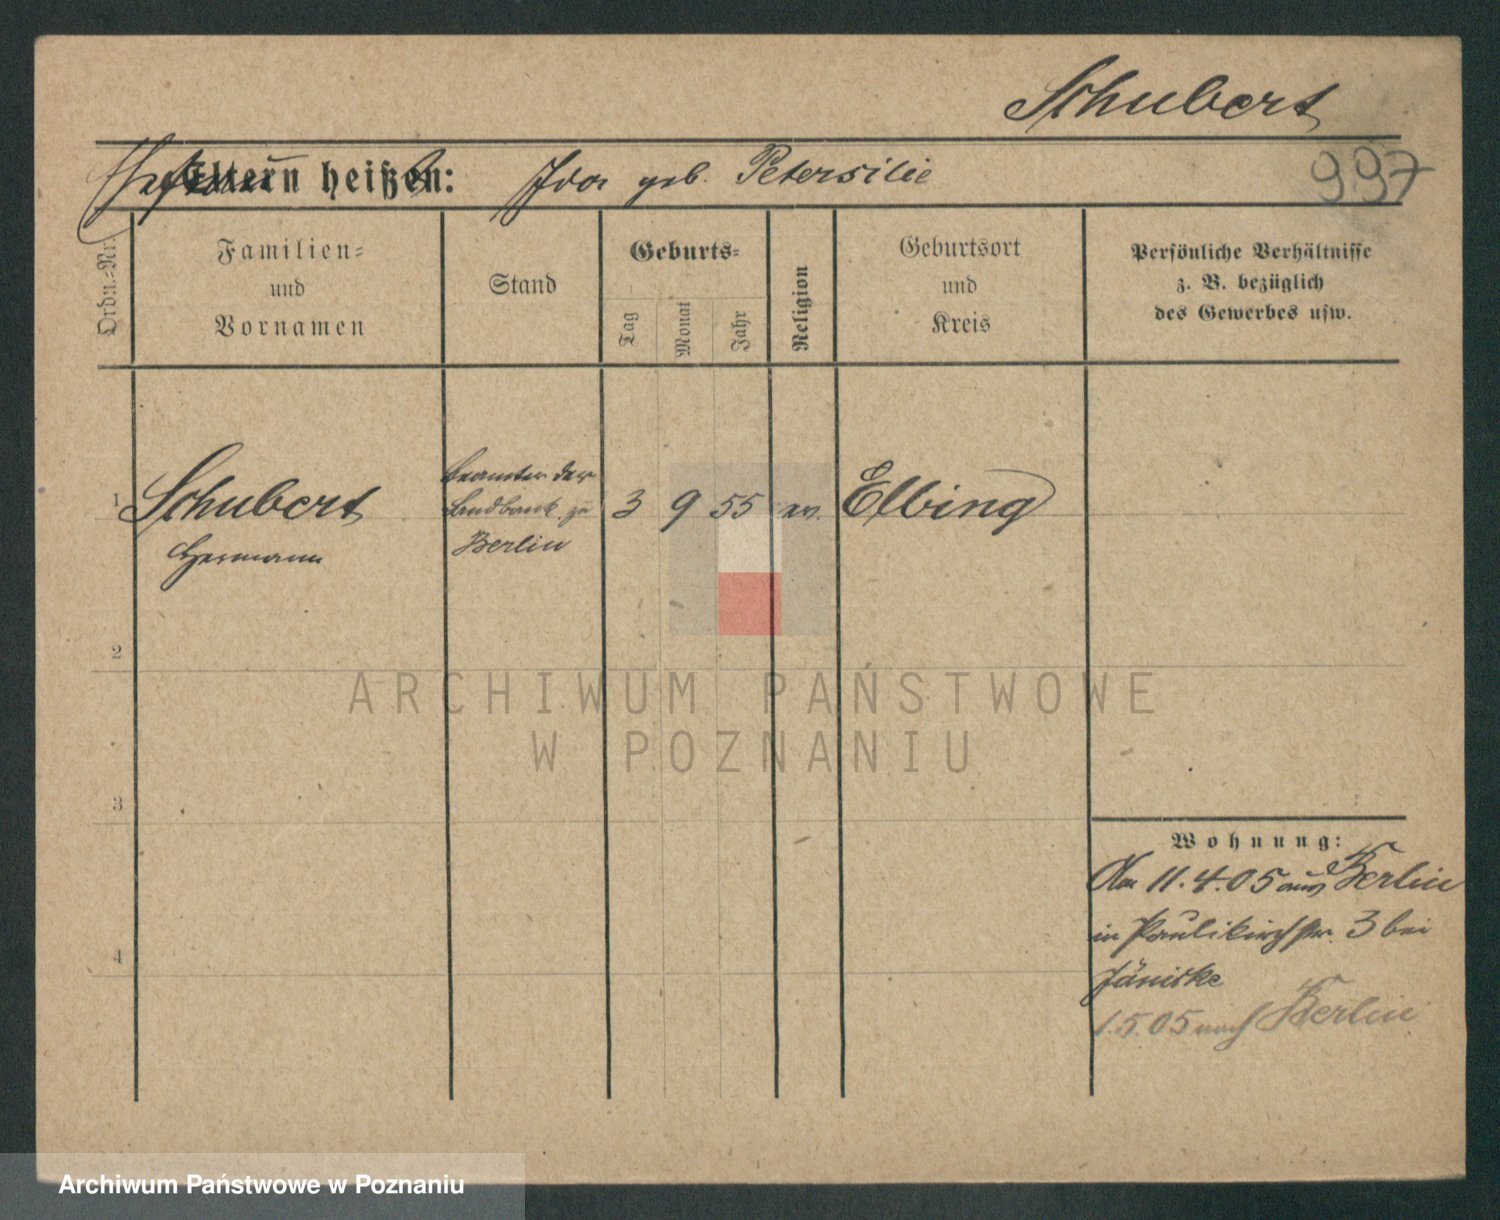 Schubert
Eltern heißen: Ida geb. Petersilie
997
Ordn.-Nr.
Familien-
und
Vornamen
Stand
Geburts-
Tag
Monat
Jahr
Religion
Geburtsort
und
Kreis
Persönliche Verhältnisse
z. B. bezüglich
des Gewerbes usw.
1
Schubert
Hermann
Beamter der
Landbank zu
Berlin
3 9 55 ev. Elbing
2
ARCHIWUM PAŃSTWOWE
W POZNANIU
3
4
Wohnung:
Am 11.4.05 aus Berlin
in Paulikirchstr. 3 bei
Jänicke
1.5.05 nach Berlin
Archiwum Państwowe w Poznaniu